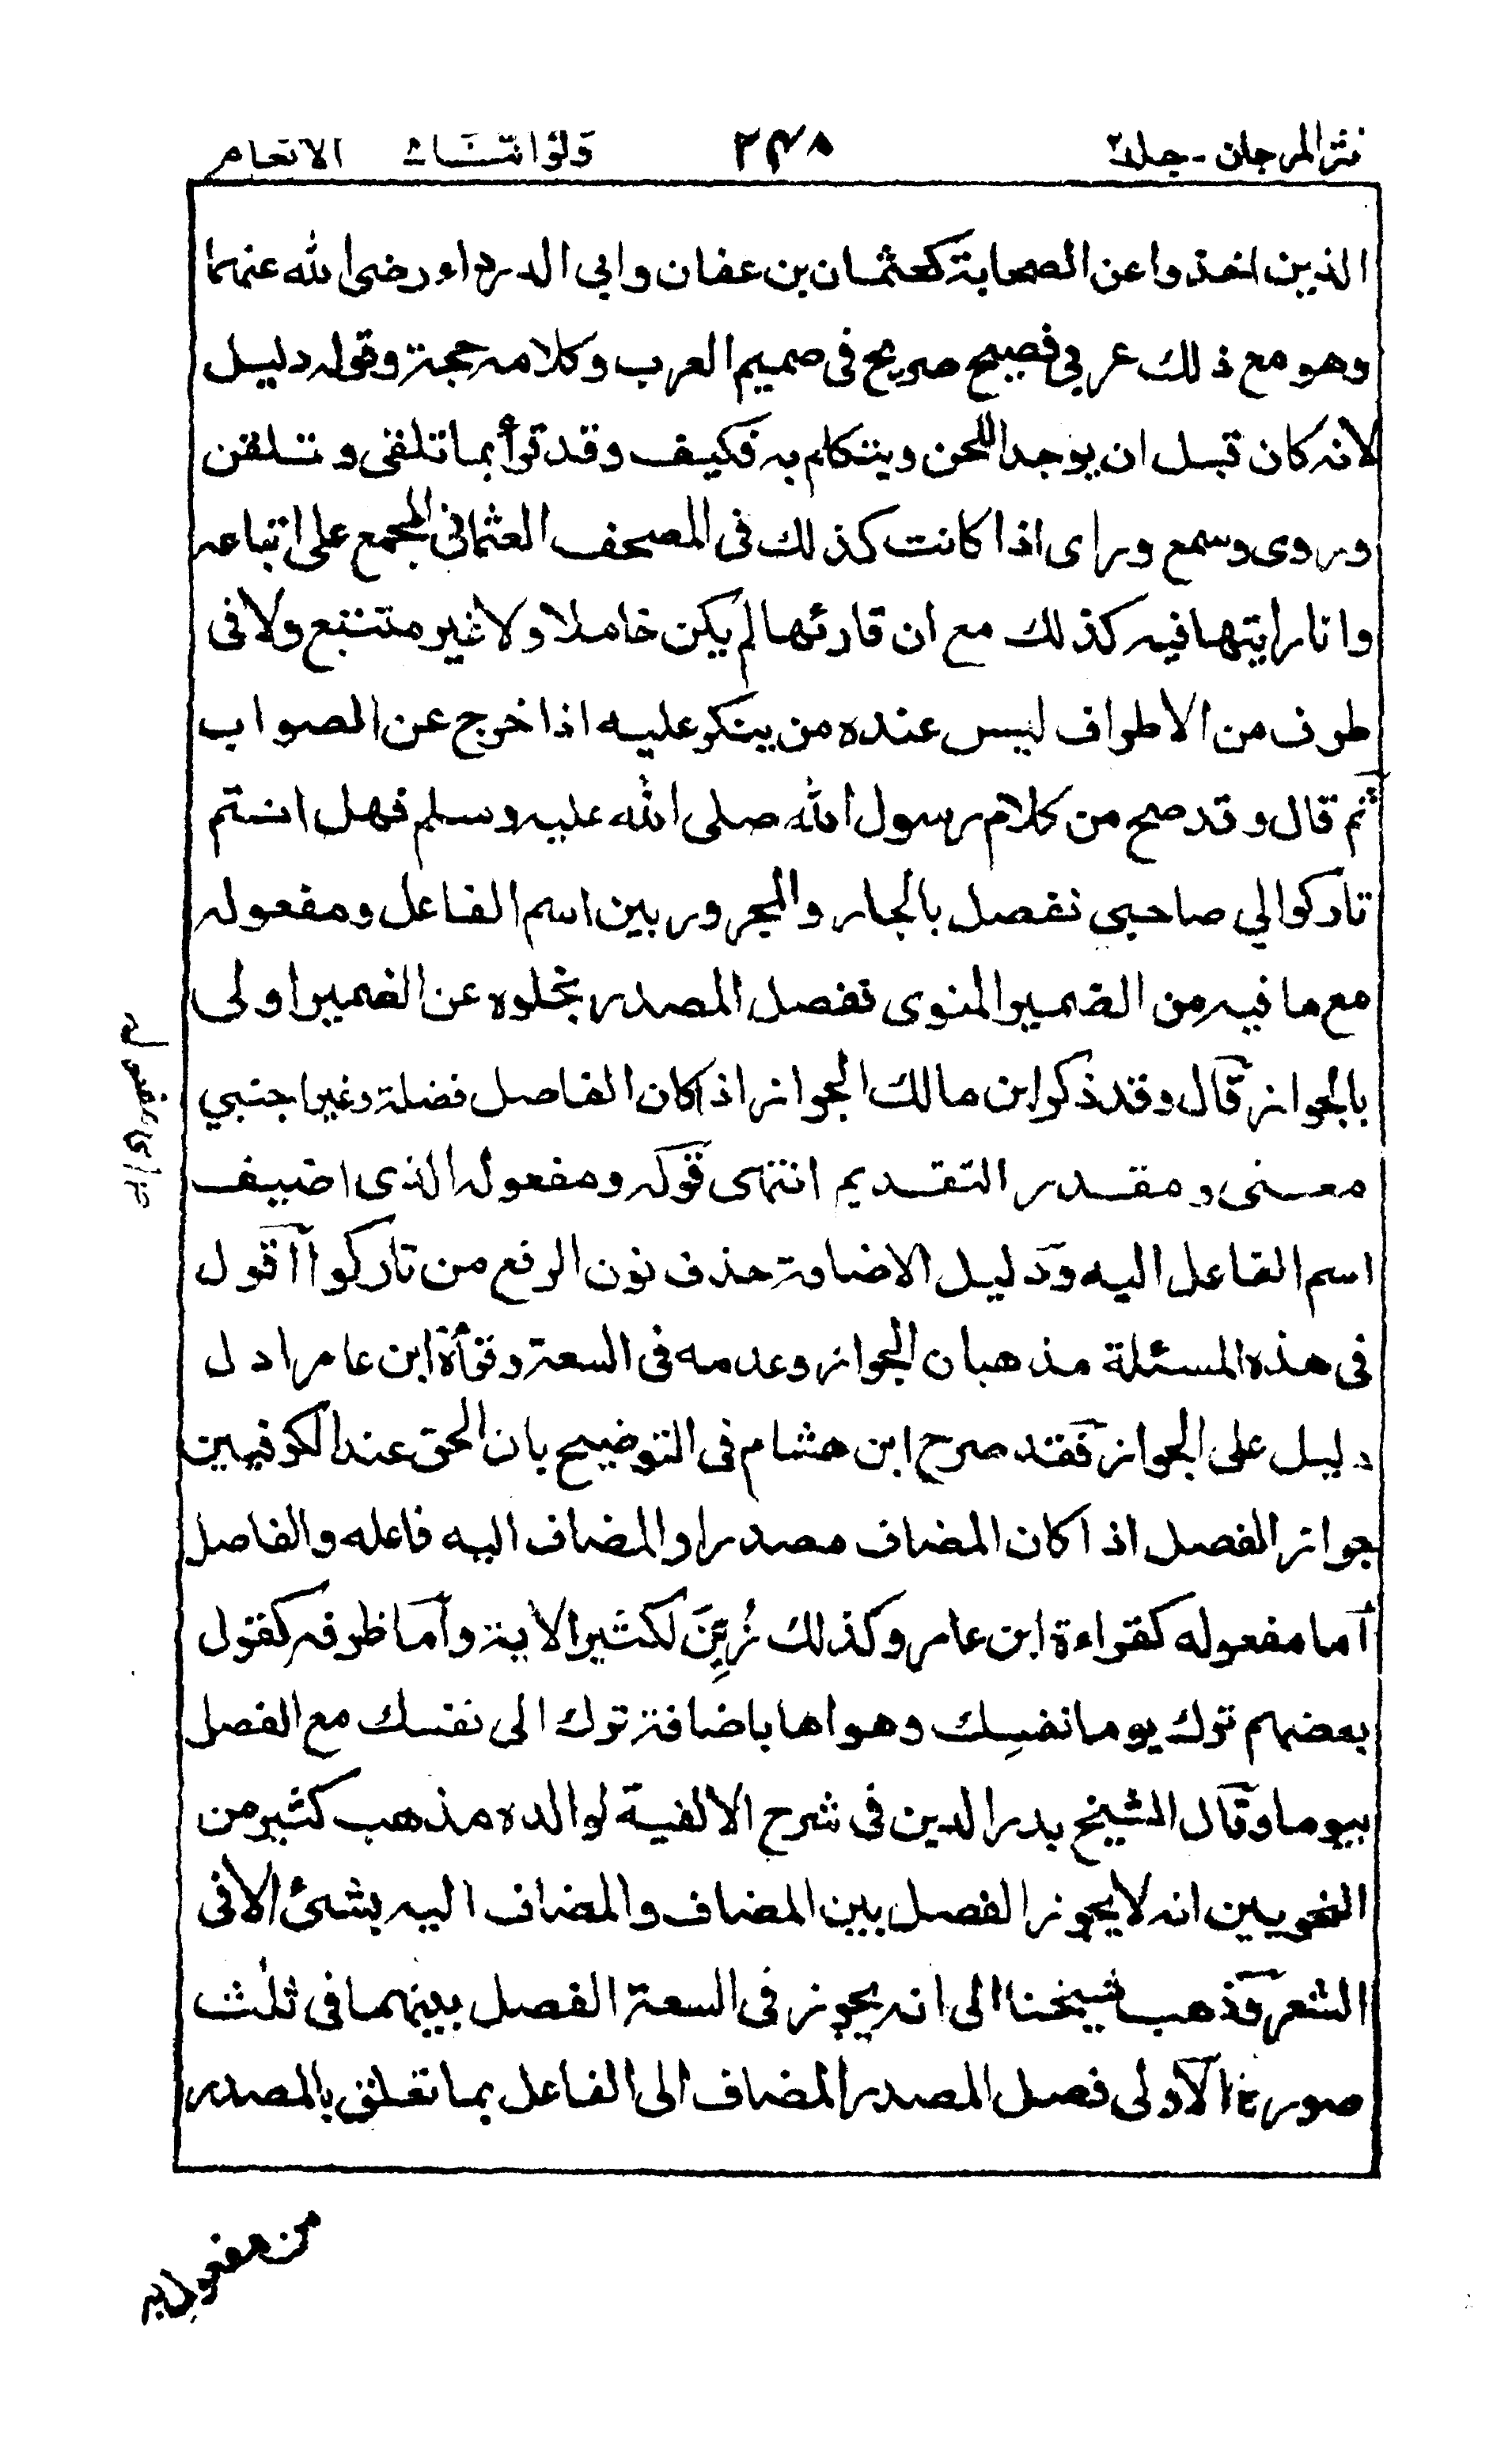 نثر المرجان - جلد ٢ ٢٣٨ ولو اننا الانعام
الذين اخذوا عن الصحابة كعثمان بن عفان وابي الدرداء رضى الله عنهما
وهو مع ذلك عربي فصيح صريح فى صميم العرب وكلامه حجة وقوله دليل
لانه كان قبل ان يوجد اللحن ويتكلم به فكيف وقد قرأ بما تلقى وتلقن
وروى وسمع وراى اذا كانت كذلك فى المصحف العثمانى المجمع على اتباعه
وانا رايتها فيه كذلك مع ان قارئها لم يكن خاملا ولا غير متتبع ولا فى
طرف من الاطراف ليس عنده من ينكر عليه اذا خرج عن الصواب
ثم قال وقد صح من كلام رسول الله صلى الله عليه وسلم فهل انتم
تاركوا لي صاحبى نفصل بالجار والمجرور بين اسم الفاعل ومفعوله
مع ما فيه من الضمير المنوى نفصل المصدر بخلوه عن الضمير اولى
بالجواز قال وقد ذكر ابن مالك الجواز اذا كان الفاصل فضلة وغير اجنبي
معنى ومقدر التقديم انتهى قوله ومفعوله الذى اضيف
اسم الفاعل اليه ودليل الاضافة حذف نون الرفع من تاركوا اقول
فى هذه المسئلة مذهبان الجواز وعدمه فى السعة وقرأة ابن عامر ادل
دليل على الجواز فقد صرح ابن هشام فى التوضيح بان الحق عند الكوفيين
جواز الفصل اذا كان المضاف مصدرا والمضاف اليه فاعله والفاصل
اما مفعوله كقراءة ابن عامر وكذلك زُيِّنَ لكثير الاية واما ظرفه كقول
بعضهم ترك يوما نفسِك وهواها باضافة ترك الى نفسك مع الفصل
بيوما وقال الشيخ بدر الدين فى شرح الالفية لوالده مذهب كثير من
النحويين انه لا يجوز الفصل بين المضاف والمضاف اليه بشئ الا فى
الشعر وذهب شيخنا الى انه يجوز فى السعة الفصل بينهما فى ثلث
صور الاولى فصل المصدر المضاف الى الفاعل بما تعلق بالمصدر
من مفعول به